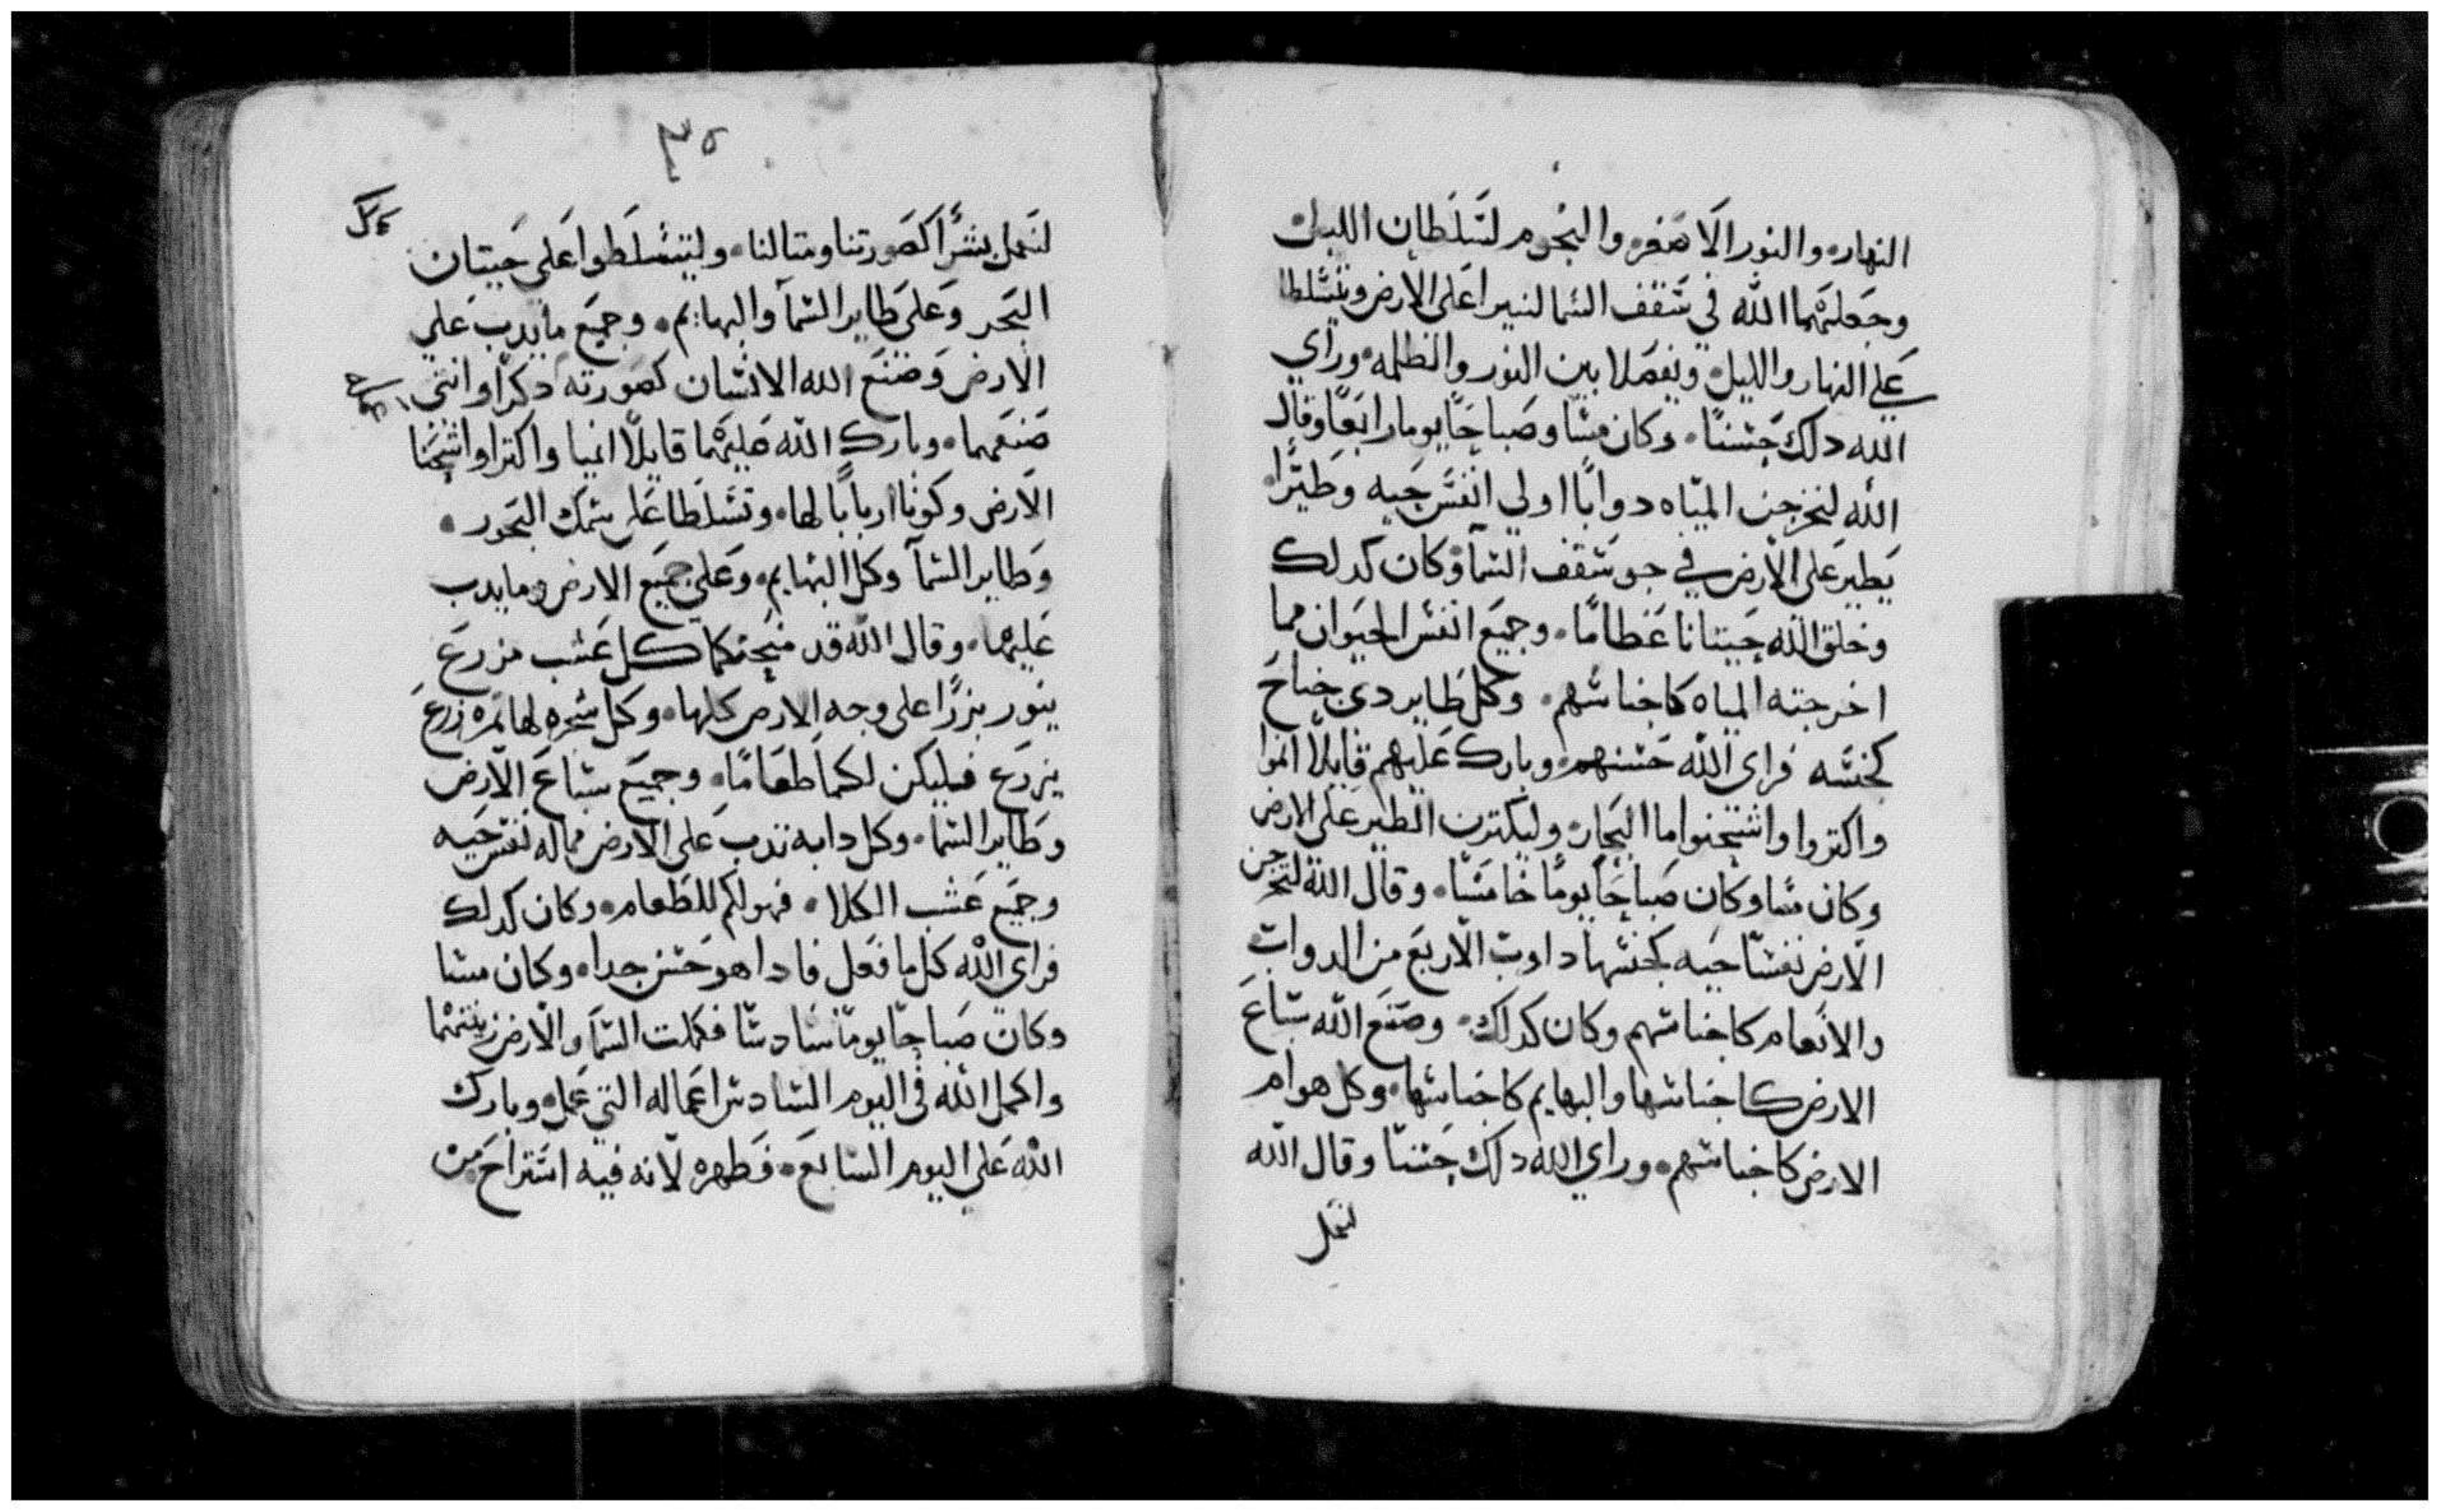 النهار۰ والنور الاصغر۰ والنجوم لتسلطان الليل۰
وجعلهما الله في سقف السما لنيرا على الارض ويتسلطا
على النهار والليل۰ ويفصلا بين النور والظلمه۰ وراي
الله دلك حسنًا۰ وكان مسًا وصباحًا يوما رابعًا وقال
الله لتخرجن المياه دوابًا اولي انفس حيه وطيرًا۰
يطير على الارض في جو سقف السما۰ وكان كدلك
وخلق الله حيتانا عظامًا۰ وجميع انفس الحيوان مما
اخرجته المياه كاجناسهم۰ وكل طاير دي جناح
كجنسه فراى الله حسنهم۰ وبارك عليهم قايلًا انموا
واكتروا واشحنوا ما البحار۰ وليكترن الطير على الارض
وكان مسا وكان صباحًا يومًا خامسًا۰ وقال الله لتخرجن
الارض نفسًا حيه كجنسها دوات الاربع من الدواب
والانعام كاجناسهم وكان كدلك۰ وصنع الله سباع
الارض كاجناسها والبهايم كاجناسها۰ وكل هوام
الارض كاجناسهم۰ وراي الله دلك حسنًا وقال الله
لنعمل
٣٥
لنعمل بشرًا كصورتنا ومتالنا۰ وليتسلطوا على حيتان
البحر وعلى طاير السما والبهايم۰ وجميع ما يدب على
الارض وصنع الله الانسان كصورته دكرًا وانتي
صنعهما۰ وبارك الله عليهما قايلًا انميا واكترا واشحنا
الارض وكونا اربابًا لها۰ وتسلطا على سمك البحور۰
وطاير السما وكل البهايم۰ وعلى جميع الارض وما يدب
عليها۰ وقال الله قد منحتكما كل عشب مزرع
يبور بزرًا على وجه الارض كلها۰ وكل شجره لها تمره زرع
يزرع فيليكن لكما طعامًا۰ وجميع سباع الارض
وطاير السما۰ وكل دابه تدب على الارض مما له نفس حيه
وجميع عشب الكلا۰ فهو لكم للطعام۰ وكان كدلك
فراى الله كل ما فعل فادا هو حسن جدا۰ وكان مسا
وكان صباحًا يومًا سادسًا فكملت السما والارض زينتهما
واكمل الله في اليوم السادس اعماله التي عمل۰ وبارك
الله على اليوم السابع۰ فطهره لانه فيه استراح من